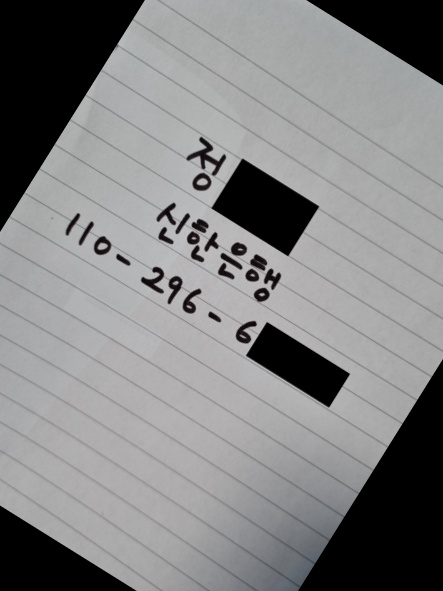 정
신한은행
110-296-6